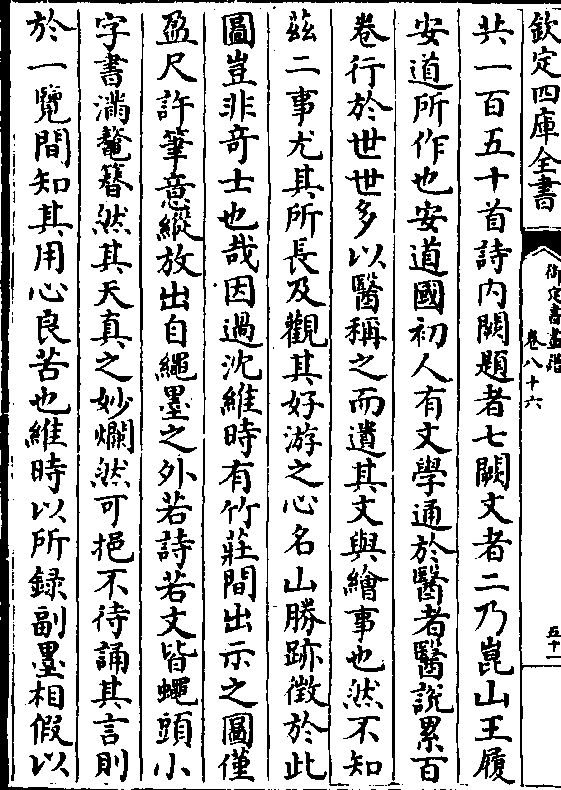 欽定四庫全書
御定書畫譜
卷八十六
五十一
共一百五十首詩内闕題者七闕文者二乃崑山王履
安道所作也安道國初人有文學通於醫者醫説累百
卷行於世世多以醫稱之而遺其文與繪事也然不知
兹二事尤其所長及觀其好游之心名山勝跡徴於此
圖豈非奇士也哉因過沈維時有竹莊間出示之圖僅
盈尺許筆意縱放出自繩墨之外若詩若文皆蠅頭小
字書滿鼇簮然其天真之妙爛然可挹不待誦其言則
於一覽間知其用心良苦也維時以所録副墨相假以